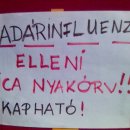 ADÁRINFLUENZ
ELLENI
CA NYAKÖRV!!
KAPHATÓ!